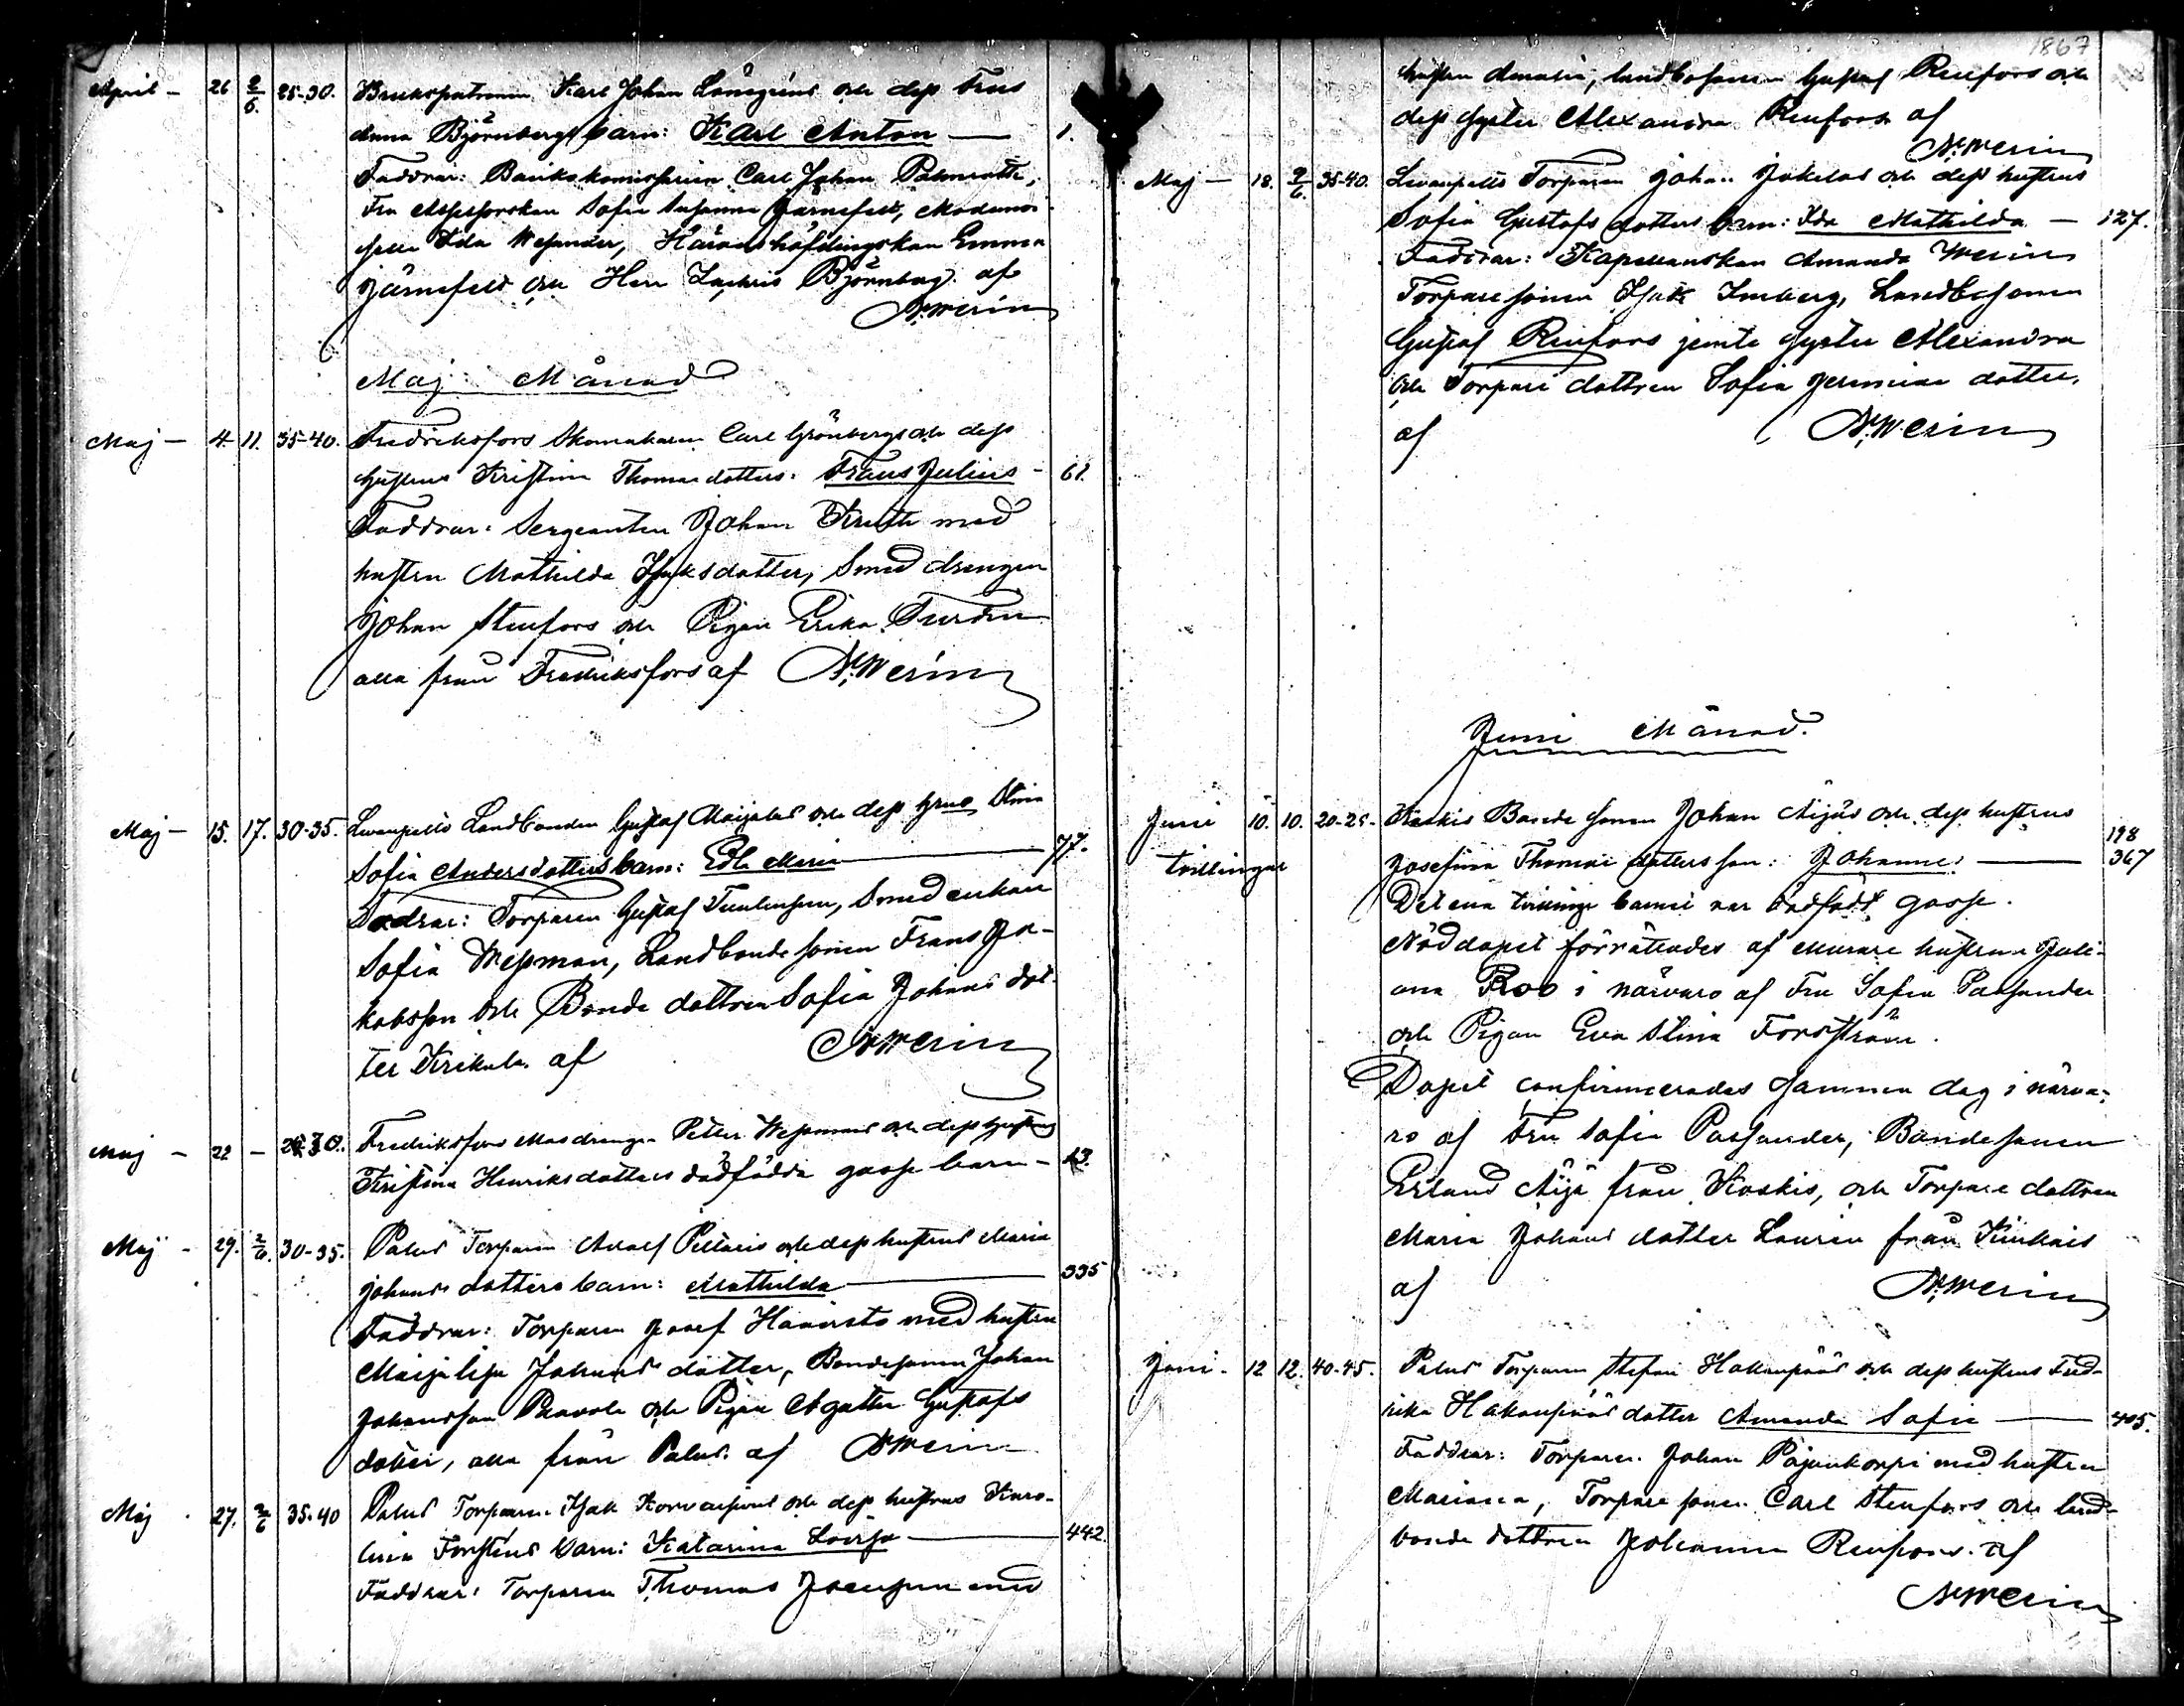 April – 26 2/6. 25-30. Brukspatronen Karl Johan Lönegréns och dess Frus
Anna Björnbergs barn: Karl Anton — 1.
Faddrar: Bankokomissarien Carl Johan
Fru Assessorskan Sofia Susanna Järnefelt, Mademoi-
selle Ida Wesander, Häradshöfdingskan Emma
Järnefelt och Herr Björnberg. af
A. Merin
Maj Månad
Maj – 4. 11. 35-40. Fredriksfors Skomakaren Carl Grönbergs och dess
hustrus Kristina Thomasdotters: Frans Julius – 61.
Faddrar: Sergeanten Johan Kruth med
hustru Mathilda Isaksdotter, Smed drengen
Johan Stenfors och Pigan Erika
alla från Fredriksfors af A. Merin
Maj – 15. 17. 30-35. Landbonden Gustaf och dess hrus Stina
Sofia Andersdotters barn: Edla Maria — 77.
Fadrar: Torparen Gustaf Smed enkan
Sofia Wesman, Landbonde sonen Frans Ja-
kobsson och Bonde dottren Sofia Johans dot-
ter af A. Merin
Maj – 22 – Fredriksfors Masdrengen Petter Wesmans och dess hustrus
Kristina Henriksdotters dödfödda gosse barn – 13.
Maj – 29. 2/6. 30-35. Palus Torparen Adolf och dess hustrus Maria
Johansdotters barn: Mathilda — 335
Faddrar: Torparen Josef Haavisto med hustru
Maija Lisa Johans dotter, Bondesonen Johan
Johansson Paavola och Pigan Agatha Gustafs
dotter, alla från Palus. af A. Merin
Maj . 27. 2/6 35-40 Palus Torparen Isak och dess hustrus Karo-
lina barn: Katarina Lovisa — 442
Faddrar: Torparen Thomas med
1867
hustru Amalia, landbosonen Gustaf Renfors och
dess syster Alexandra Renfors af
A. Merin
Maj – 18. 2/6. 35-40. Torparen Johan och dess hustrus
Sofia Gustafs dotters barn: Ida Mathilda — 127.
Faddrar: Kapellanskan Amanda Merin
Torpare sonen Isak Imberg, Landbosonen
Gustaf Renfors jemte syster Alexandra
och Torpare dottren Sofia dotter.
af A. Merin
Juni Månad.
Juni 10. 10. 20-25. Koskis Bonde sonen Johan Äijäs och dess hustrus
tvillingar Josefina dotters son: Johannes — 198 367
Det ena tvillinge barnet var dödfödt gosse.
Nöddopet förrättades af Murare hustrun Juli-
ana Roo i närvaro af Fru Sofia
och Pigan Eva Stina Forsström.
Dopet confirmerades samma dag i närva-
ro af Fru Sofia Bondesonen
Erland Äijä från Koskis, och Torpare dottren
Maria Johans dotter Laurén från
af A. Merin
Juni – 12 12. 40-45. Palus Torparen Stefan Hakanpääs och dess hustrus Fred-
rika Hakanpääs dotter Amanda Sofia — 405.
Faddrar: Torparen Johan Pajunkorpi med hustru
Mariana, Torpare sonen Carl Stenfors och land-
bonde dottren Johanna Renfors. af
A. Merin